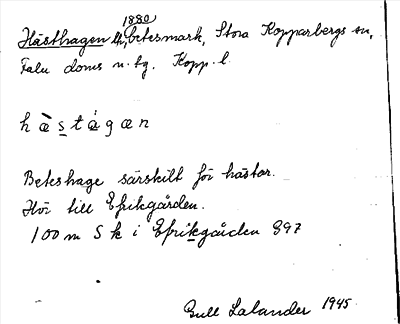 1880
Hästhagen, betesmark, Stora Kopparbergs sn,
Falu doms n. tg. Kopp. l.
hæ̀stágæn
Beteshage särskilt för hästar.
Hör till Efrikgården.
100 m S k i Efrikgården 897
Gull Lalander 1945.